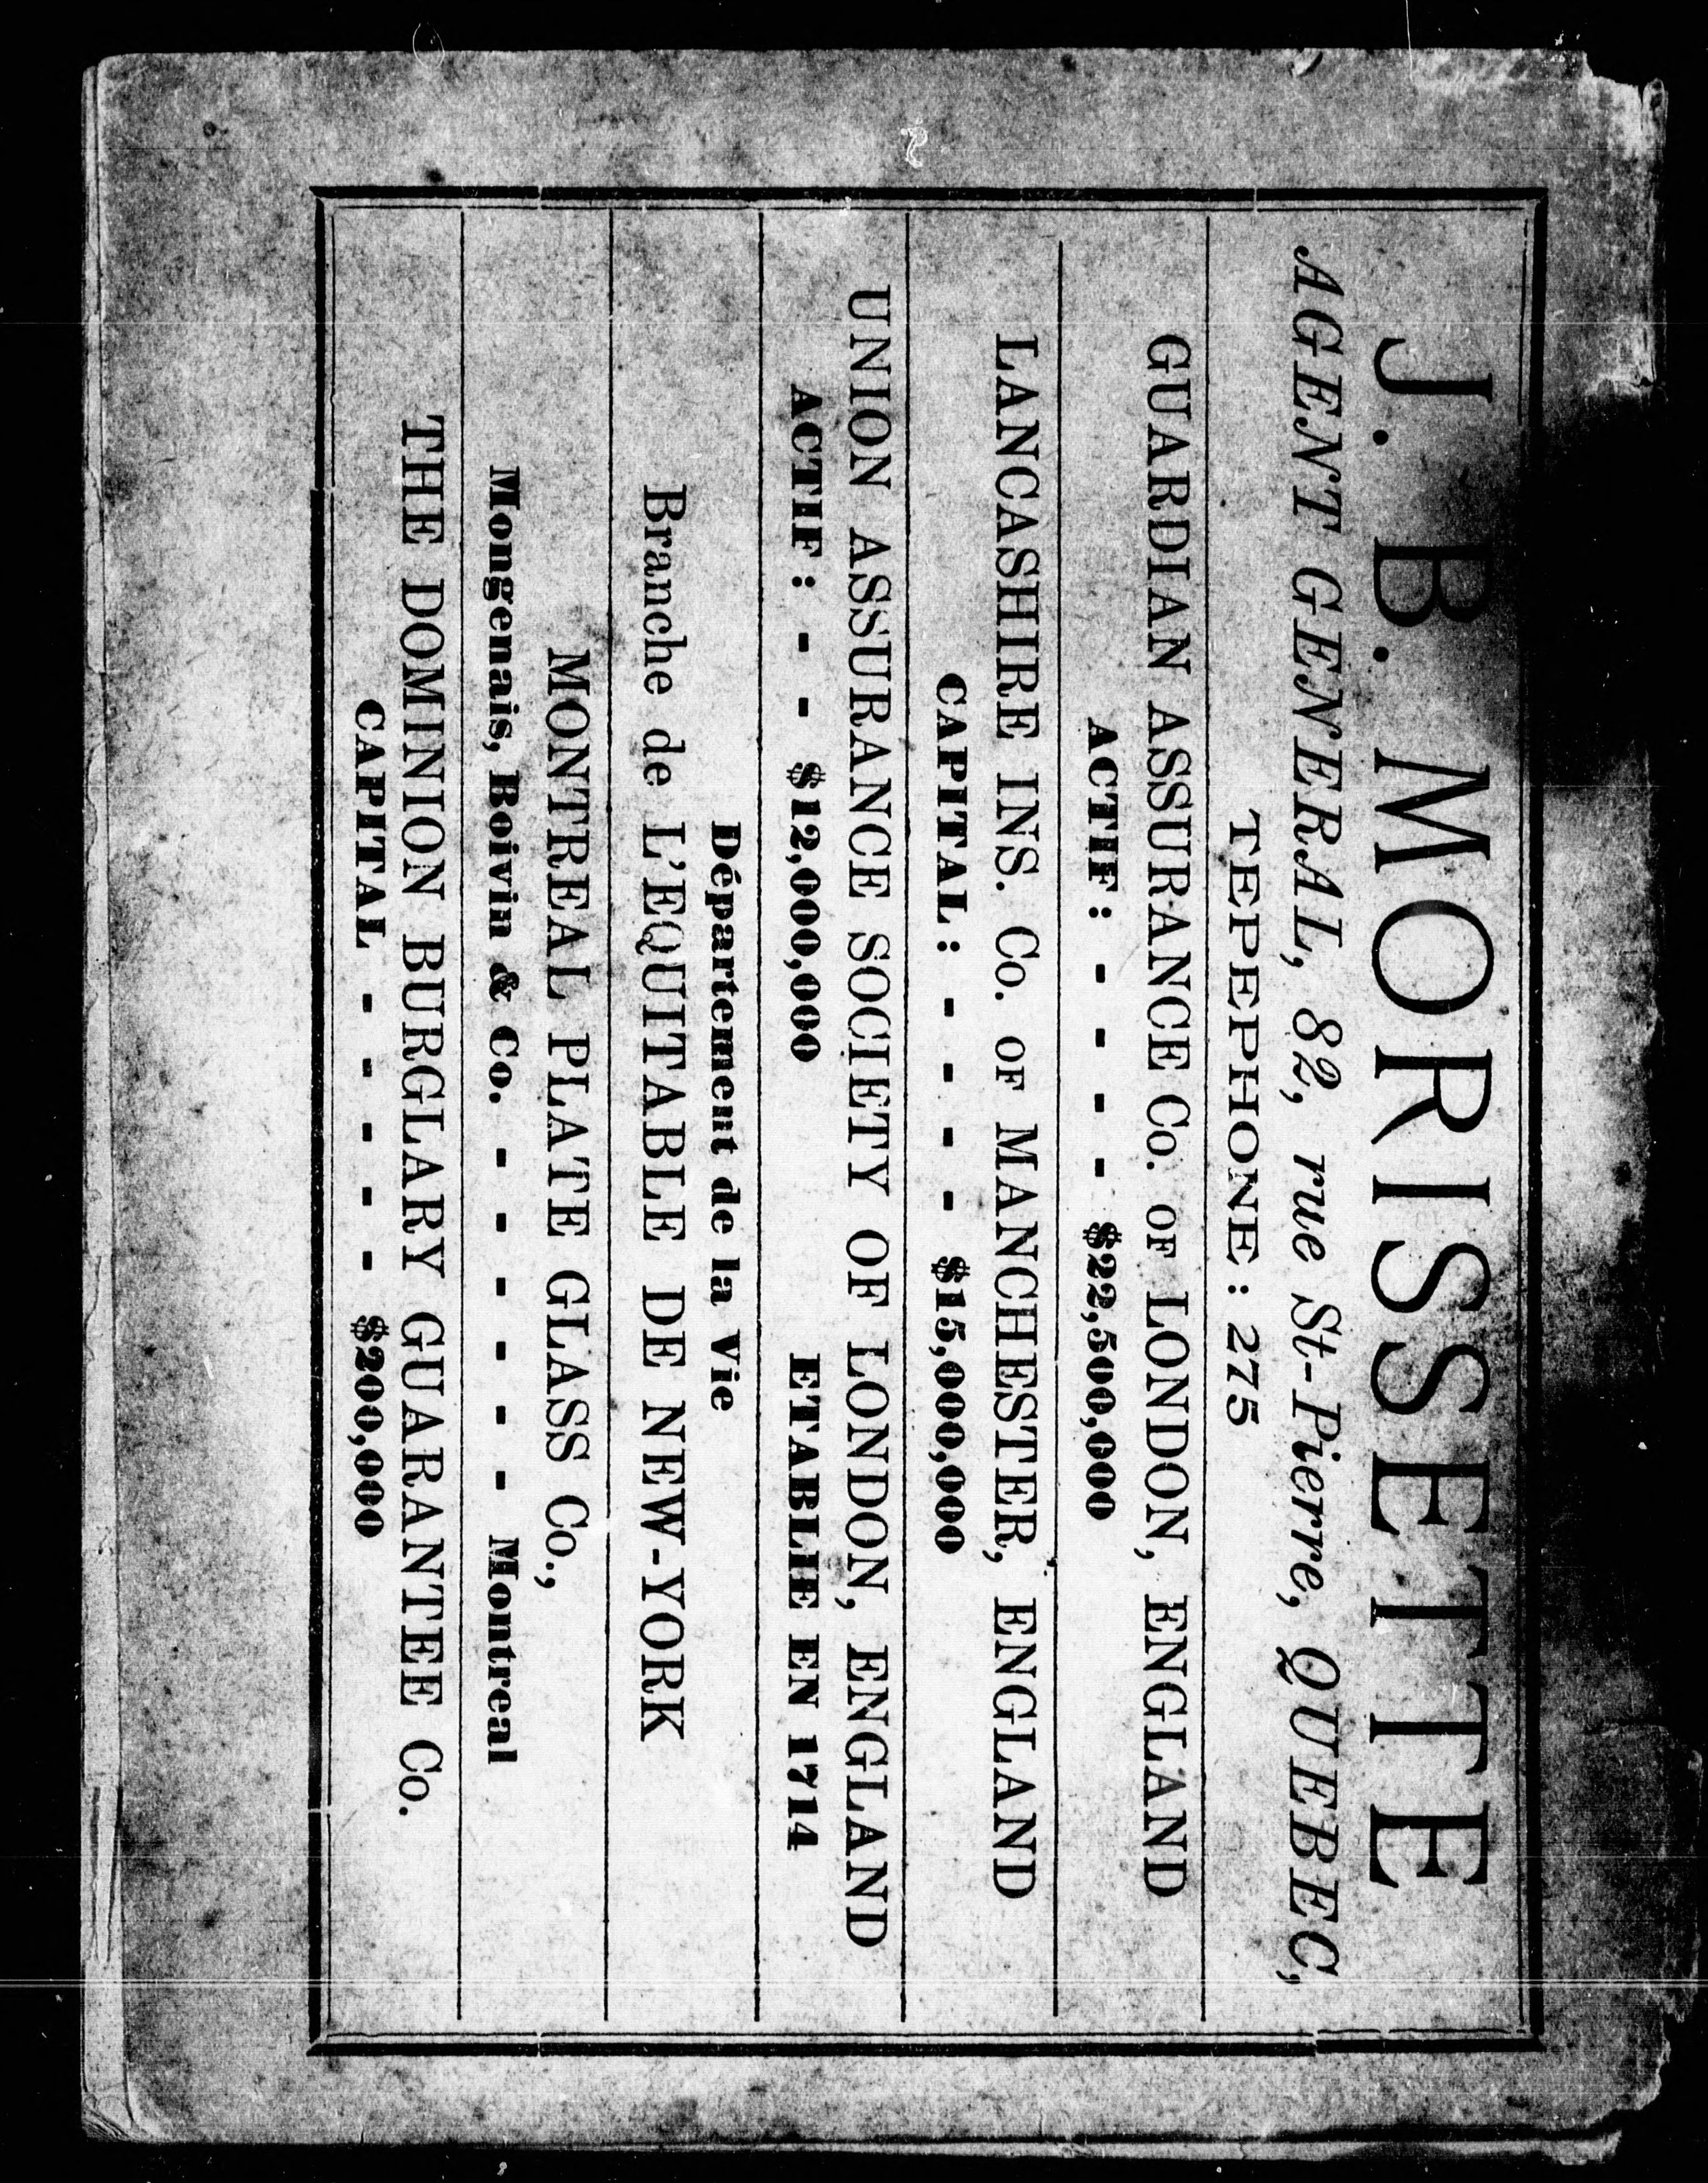 J. B. MORISSETTE
AGENT GENERAL, 82, rue St-Pierre, QUEBEC,
TEPEPHONE: 275
GUARDIAN ASSURANCE Co. OF LONDON, ENGLAND
ACTIF: - - - - $22,500,000
LANCASHIRE INS. Co. OF MANCHESTER, ENGLAND
CAPITAL: - - - - $15,000,000
UNION ASSURANCE SOCIETY OF LONDON, ENGLAND
ACTIF: - - $12,000,000 ETABLIE EN 1714
Département de la Vie
Branche de L'EQUITABLE DE NEW-YORK
MONTREAL PLATE GLASS Co.,
Mongenais, Boivin & Co. - - - - - - Montreal
THE DOMINION BURGLARY GUARANTEE Co.
CAPITAL - - - - - $200,000